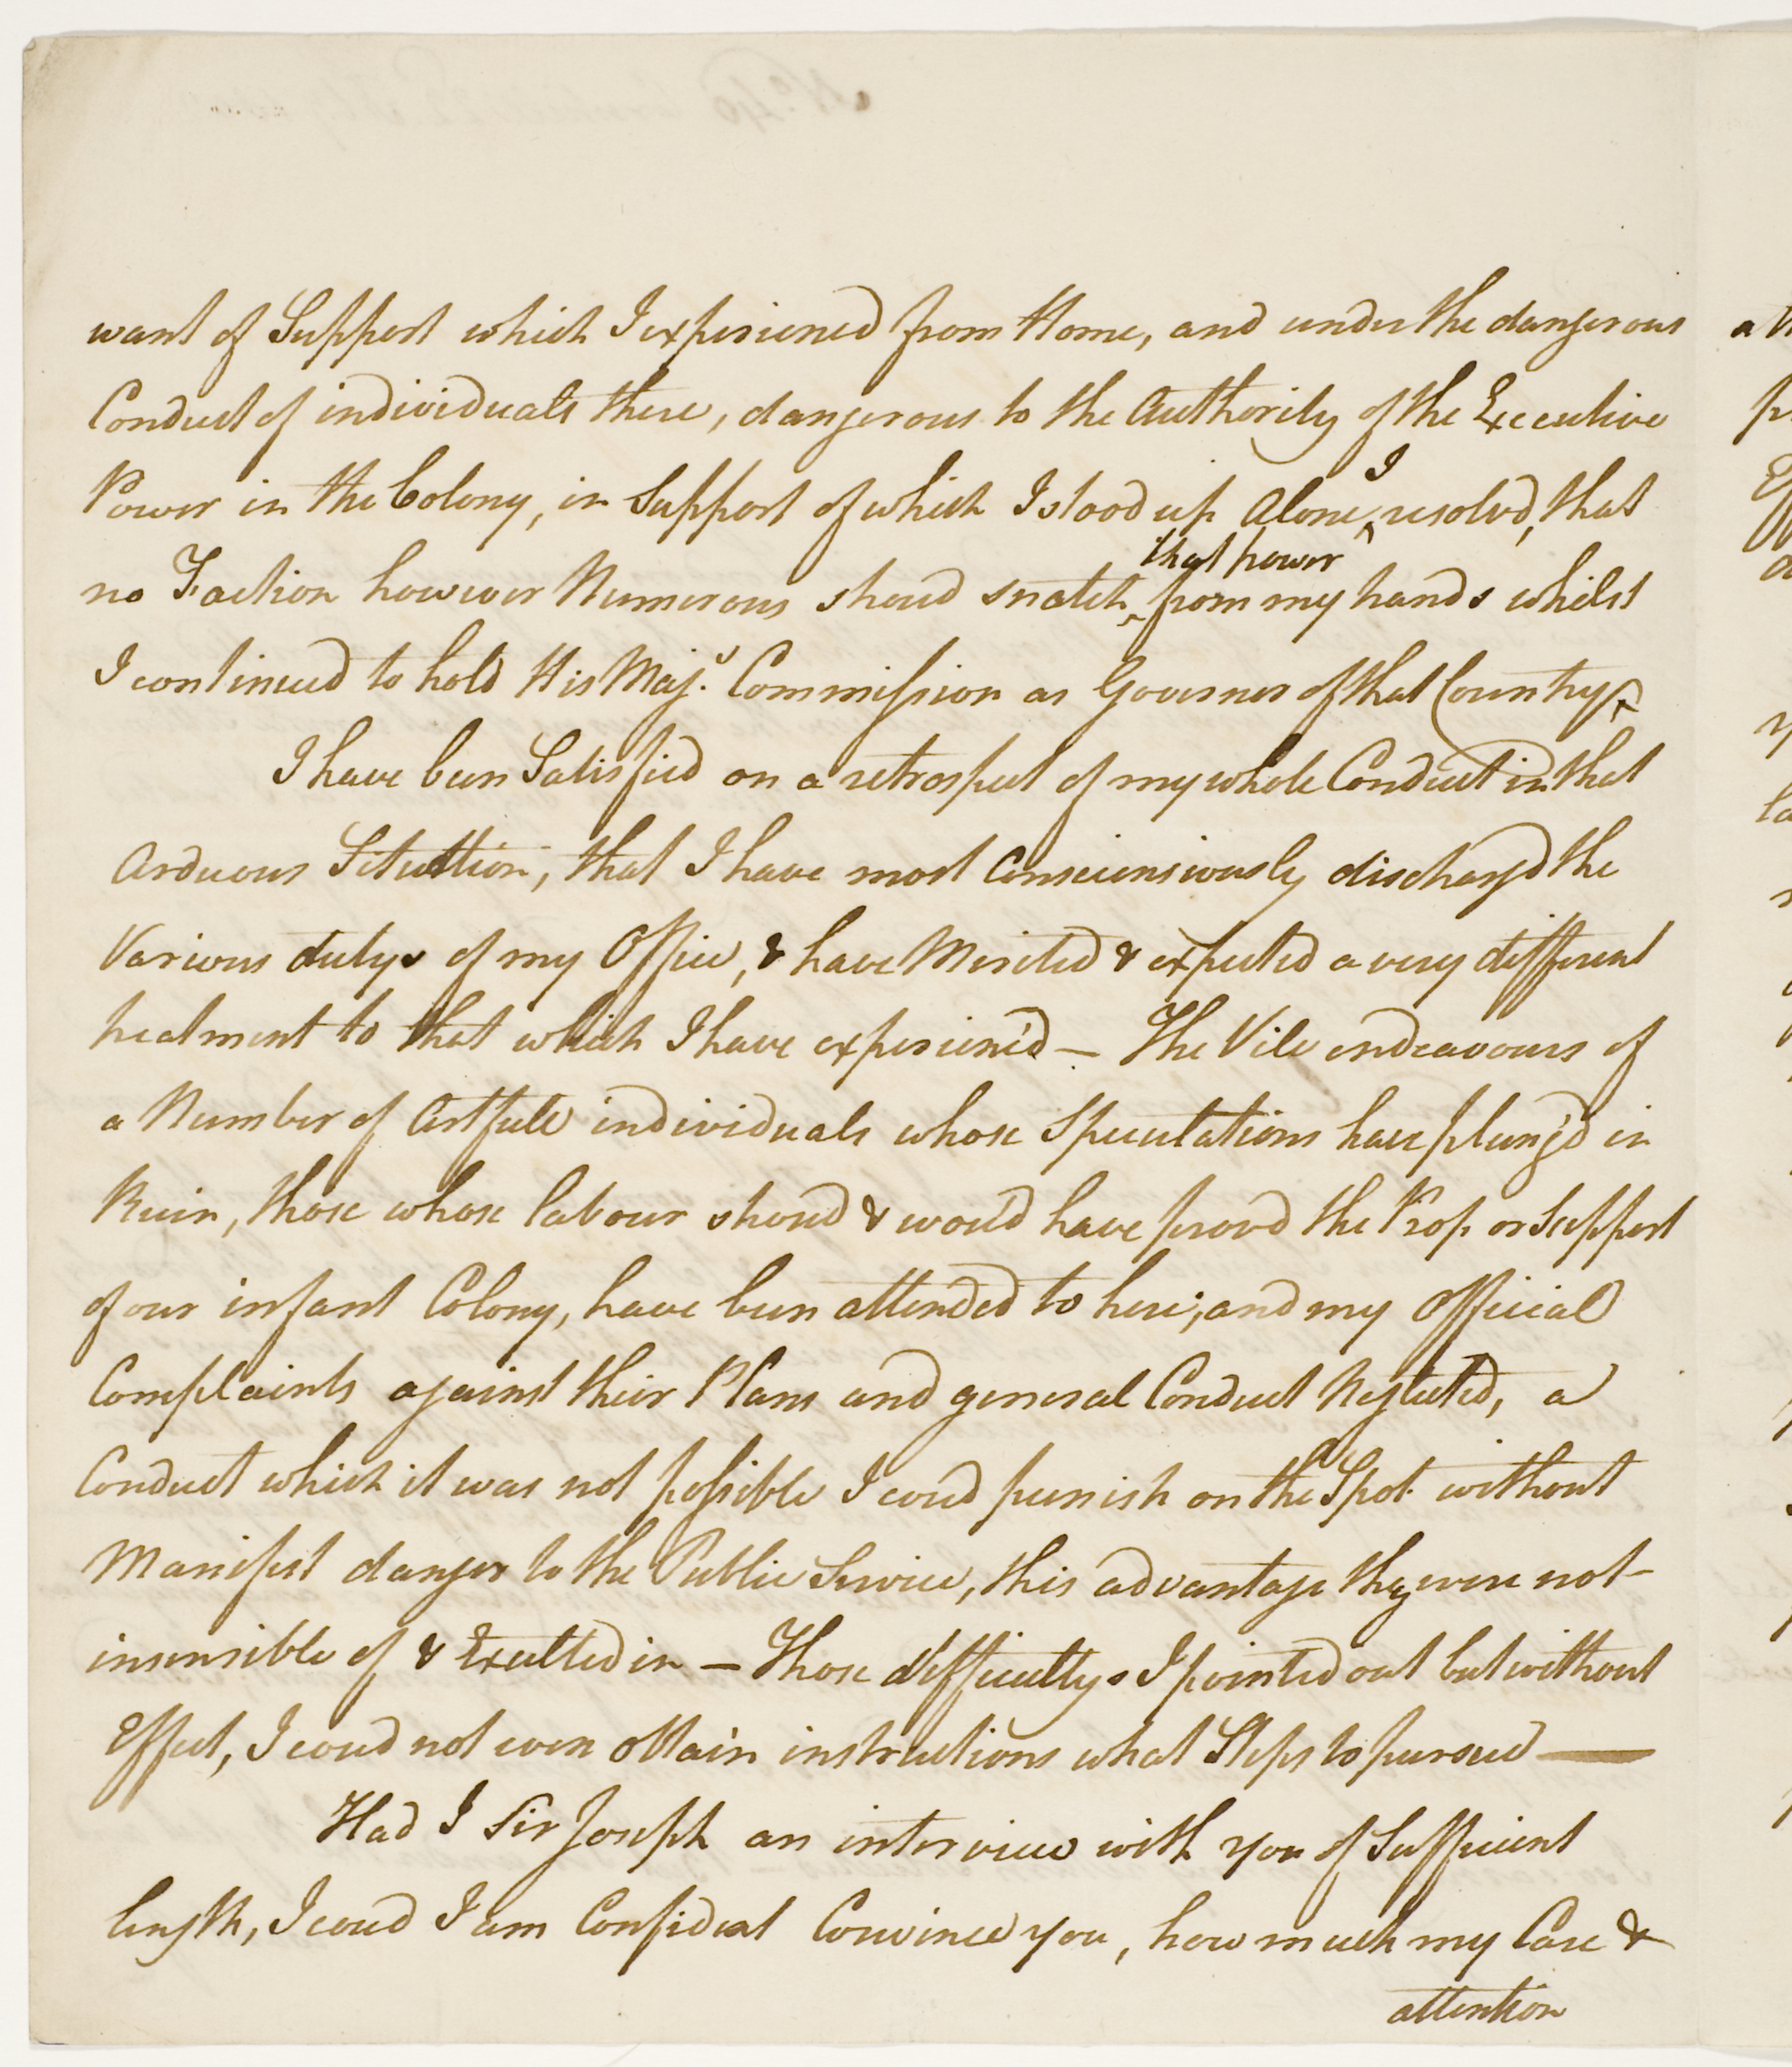 want of Support which I experienced from Home, and under the dangerous
Conduct of individuals there, dangerous to the Authority of the Executive
Power in the Colony, in Support of which I stood up Alone, I resolvd, that
no Faction however Numerous shoud snatch that power from my hands whilst
I continued to hold His Maj.s Commission as Governor of that Country,
I have been Satisfied on a retrospect of my whole Conduct in that
Arduous Situation, that I have most Consciensiously discharg'd the
Various dutys of my Office, & have Merited & expected a very different
treatment to that which I have experienc'd — The Vile endeavours of
a Number of Artfull individuals whose Speculations have plung'd in
Ruin, those whose labour shoud & wou'd have provd the Prop or Support
of our infant Colony, have been attended to here; and my Official
Complaints against their Plans and general Conduct Neglected, a
Conduct which it was not possible I coud punish on the Spot without
Manifest danger to the Public Service, this advantage they were not-
insensible of & Exulted in — Those difficultys I pointed out but without
Effect, I coud not even obtain instructions what Steps to pursue —
Had I Sir Joseph an interview with you of Sufficient
length, I coud I am Confident Convince you, how much my Care &
attention